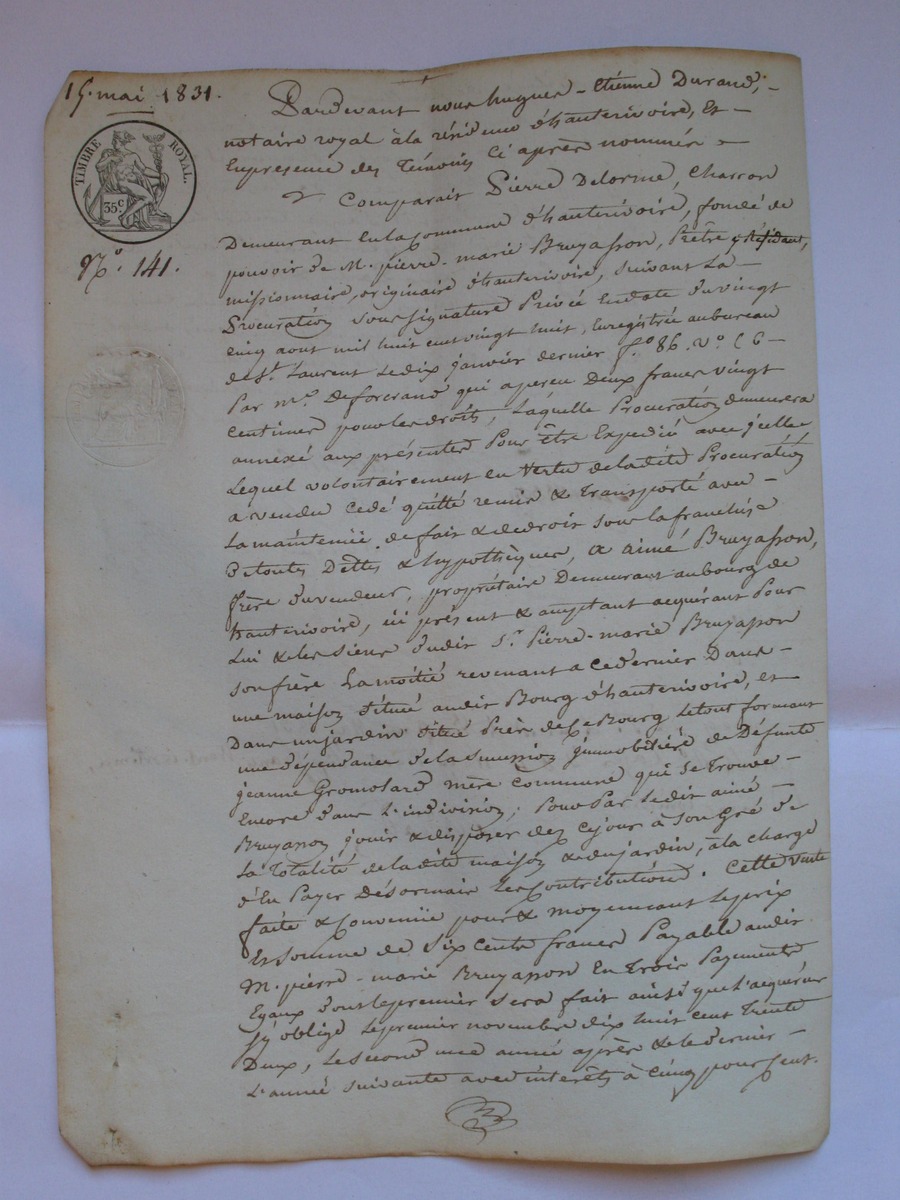 15. mai 1831.
TIMBRE ROYAL.
35c
No. 141.
Pardevant nous hugues-Etienne Durand,
notaire royal à la résidence d'hauterivoire, Et
En presence des Témoins Ci après nommés
Comparait Pierre Delorme, Charron
Demeurant En la Commune d'hauterivoire, fondé de
pouvoir de M. pierre-marie Bruyasson, Prêtre y Résidant,
missionnaire, originaire d'hauterivoire, suivant la
Procuration sous signature Privée En date du vingt
cinq aout mil huit cent vingt huit, Enregistrée au bureau
de St. Laurent Le dix janvier dernier fo. 86. Vo. C 6
Par Mr. Deforcrand qui a perçu Deux francs vingt
Centimes pour les droits, Laquelle Procuration demeurera
annexé aux présentes Pour être Expedié avec jcelles
Lequel volontairement En Vertu de la dite Procuration
a vendu Cedé quitté remis & Transporté avec
La maintenüe de fait & de droit sous la franchise
De toutes Dettes & hypothèques, a aimé Bruyasson,
frère du vendeur, propriétaire Demeurant au bourg de
hauterivoire, ici présent & acceptant acquérant Pour
Lui & les siens dudit Sr. Pierre-marie Bruyasson
son frère La moitié revenant a ce dernier Dans
une maison située audit Bourg d'hauterivoire, et
Dans un jardin situé Près de Ce Bourg Le tout formant
une dépendance de la succession jmmobilière de Défunte
jeanne Gromolard mère Commune qui se Trouve
Encore dans L'indivision; Pour Par Ledit aimé
Bruyasson jouir & disposer dez Cejour à son Gré de
La Totalité de la dite maison & du jardin, à la charge
d'En Payer Désormais Les Contributions. Cette vente
faite & Convenüe pour & moyennant Le prix
Et somme de Six Cents francs Payable audit
M. pierre-marie Bruyasson En trois Payements
Egaux dont le premier sera fait ainsi que L'acquéreur
s'y oblige Le premier novembre dix huit cent trente
Deux, Le second une année après & le dernier
L'année suivante avec intérêts à Cinq pour Cent.